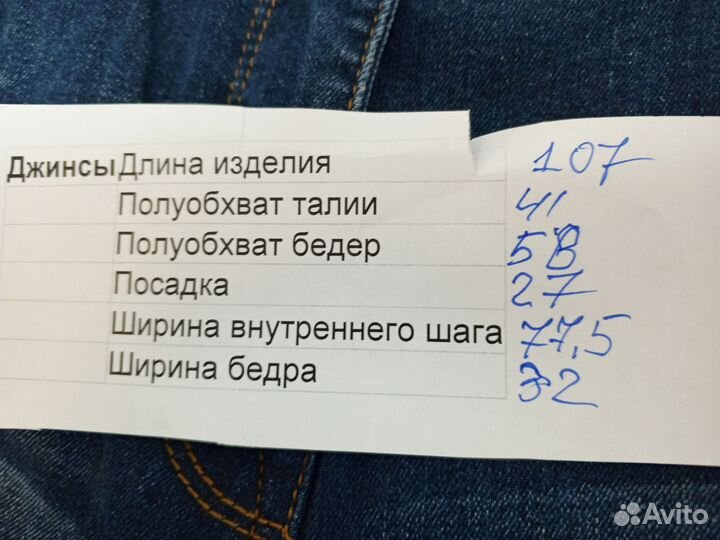 Джинсы Длина изделия 107
Полуобхват талии 41
Полуобхват бедер 58
Посадка 27
Ширина внутреннего шага 77,5
Ширина бедра 32
Avito